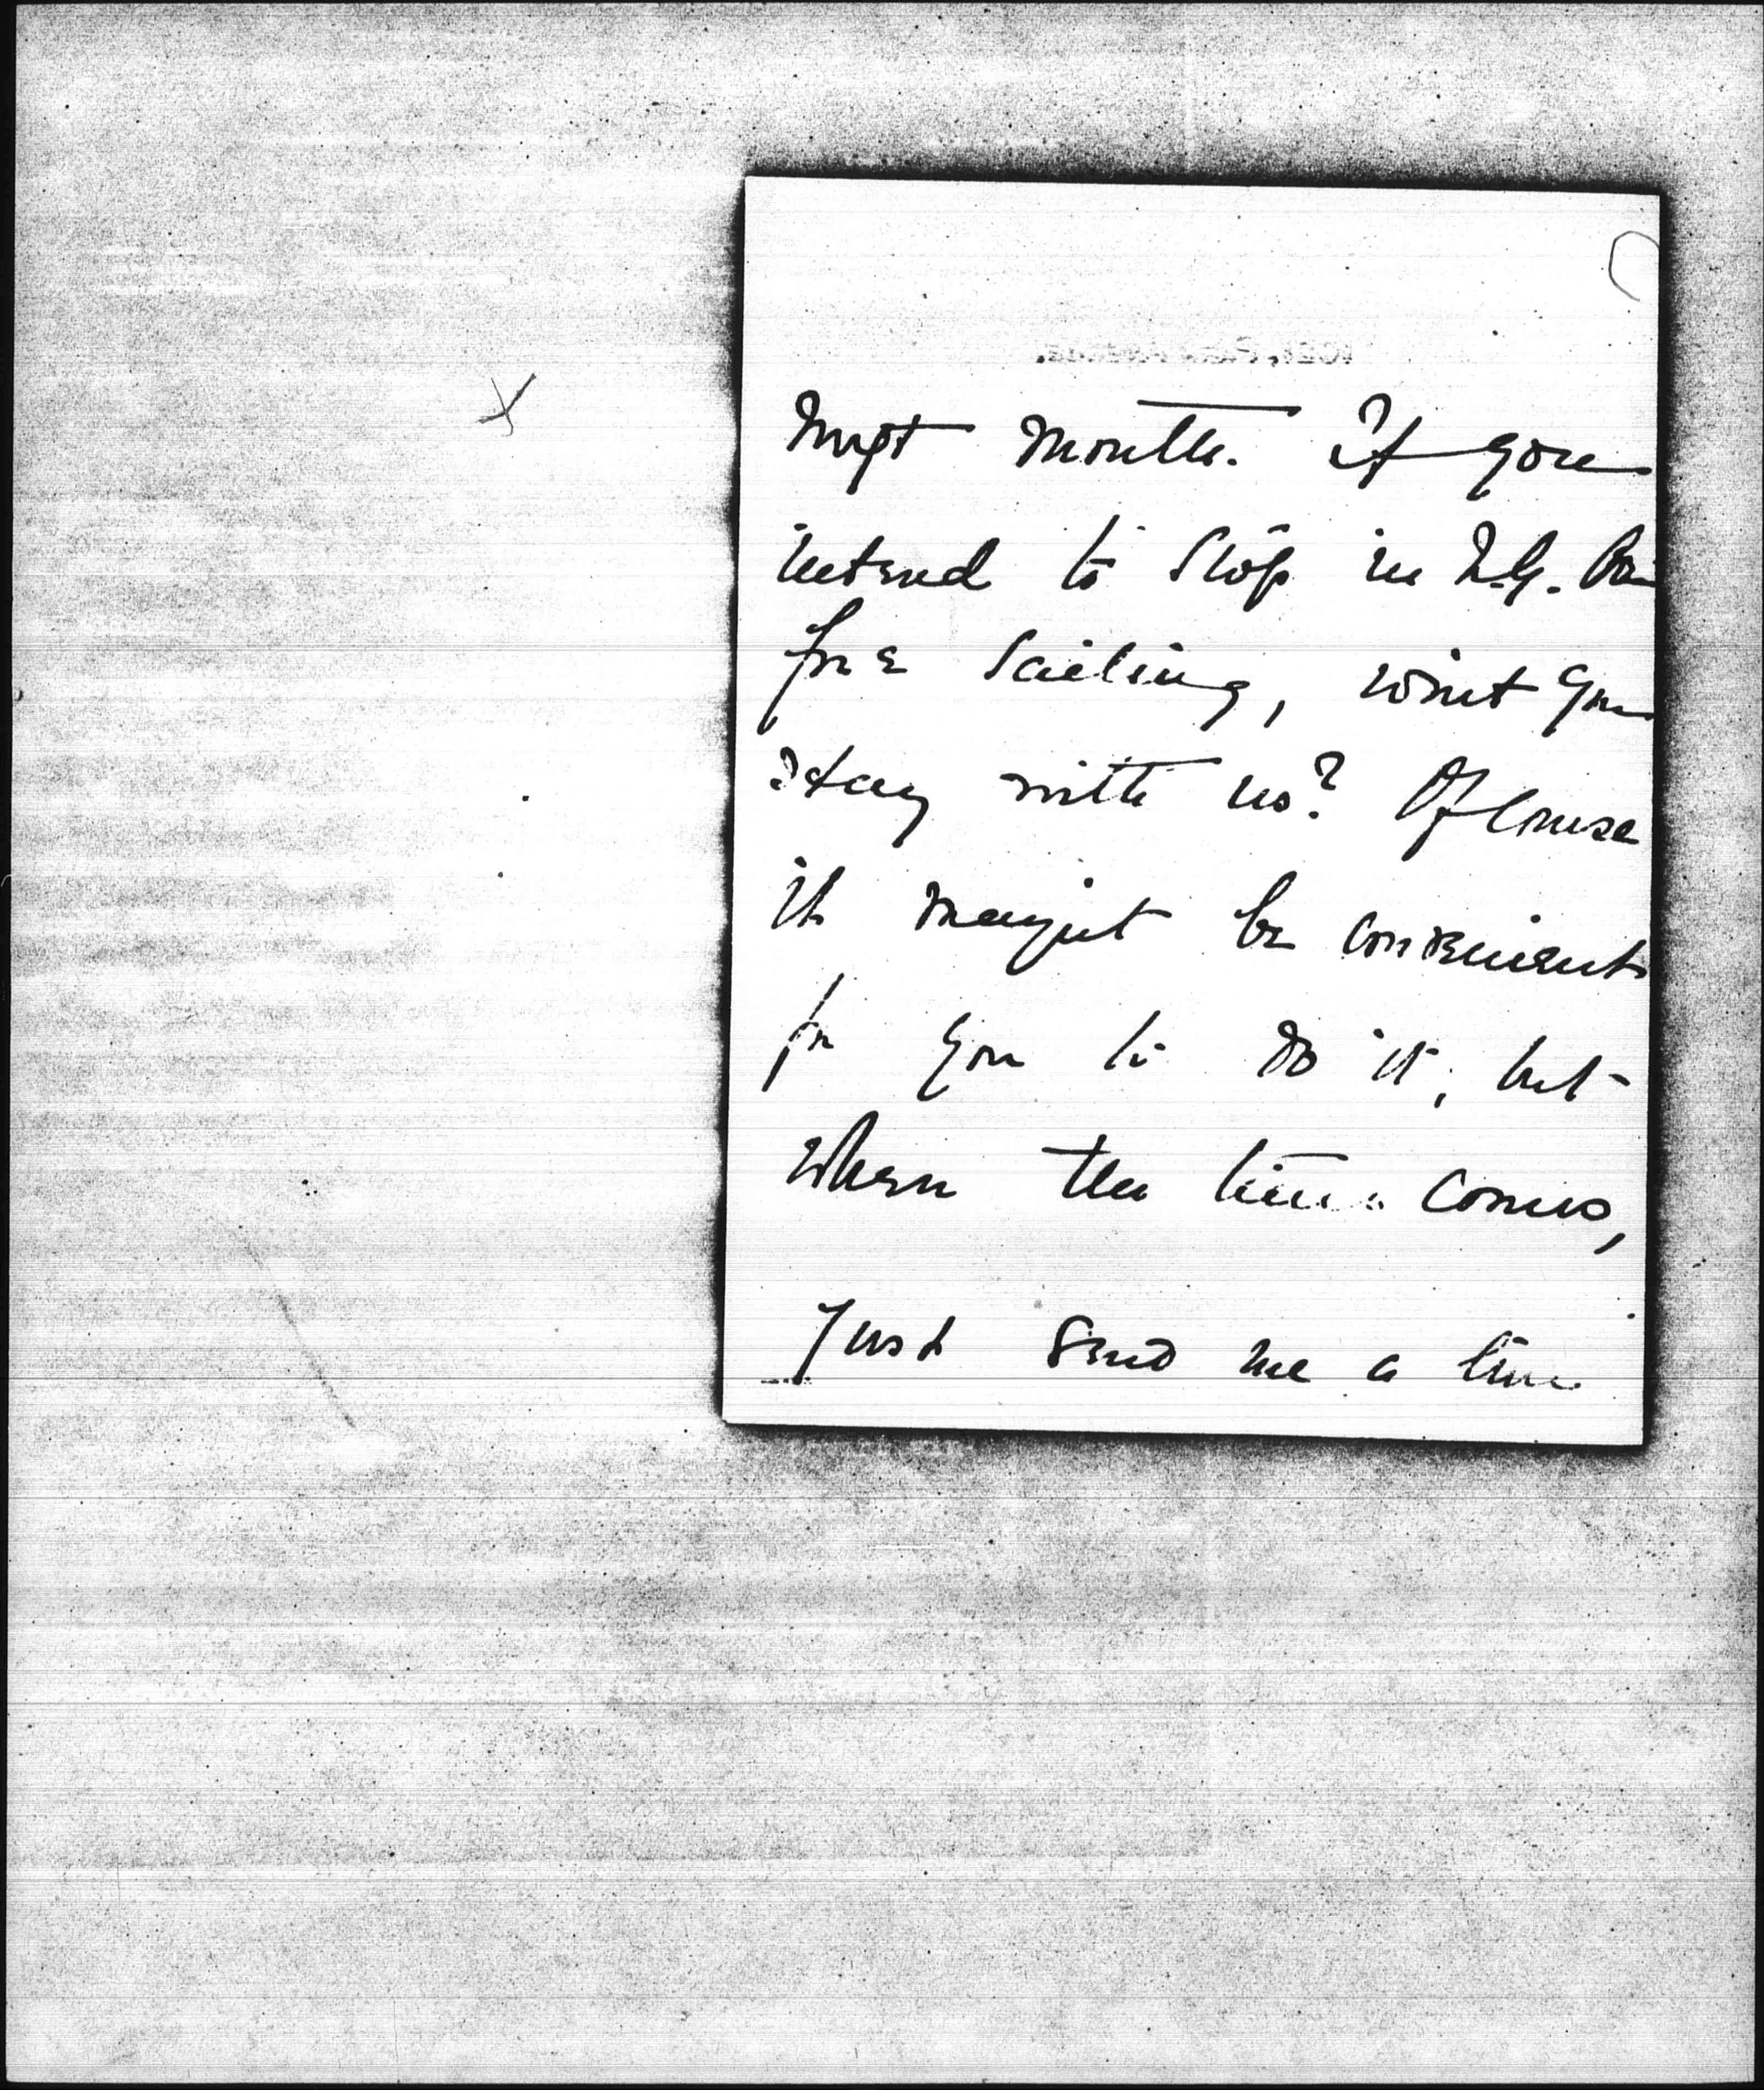 next month. If you
intend to stop in N.Y. be-
fore sailing, wont you
stay with us? Of course
it maynt be convenient
for you to do it, but
when the time comes,
just send me a line